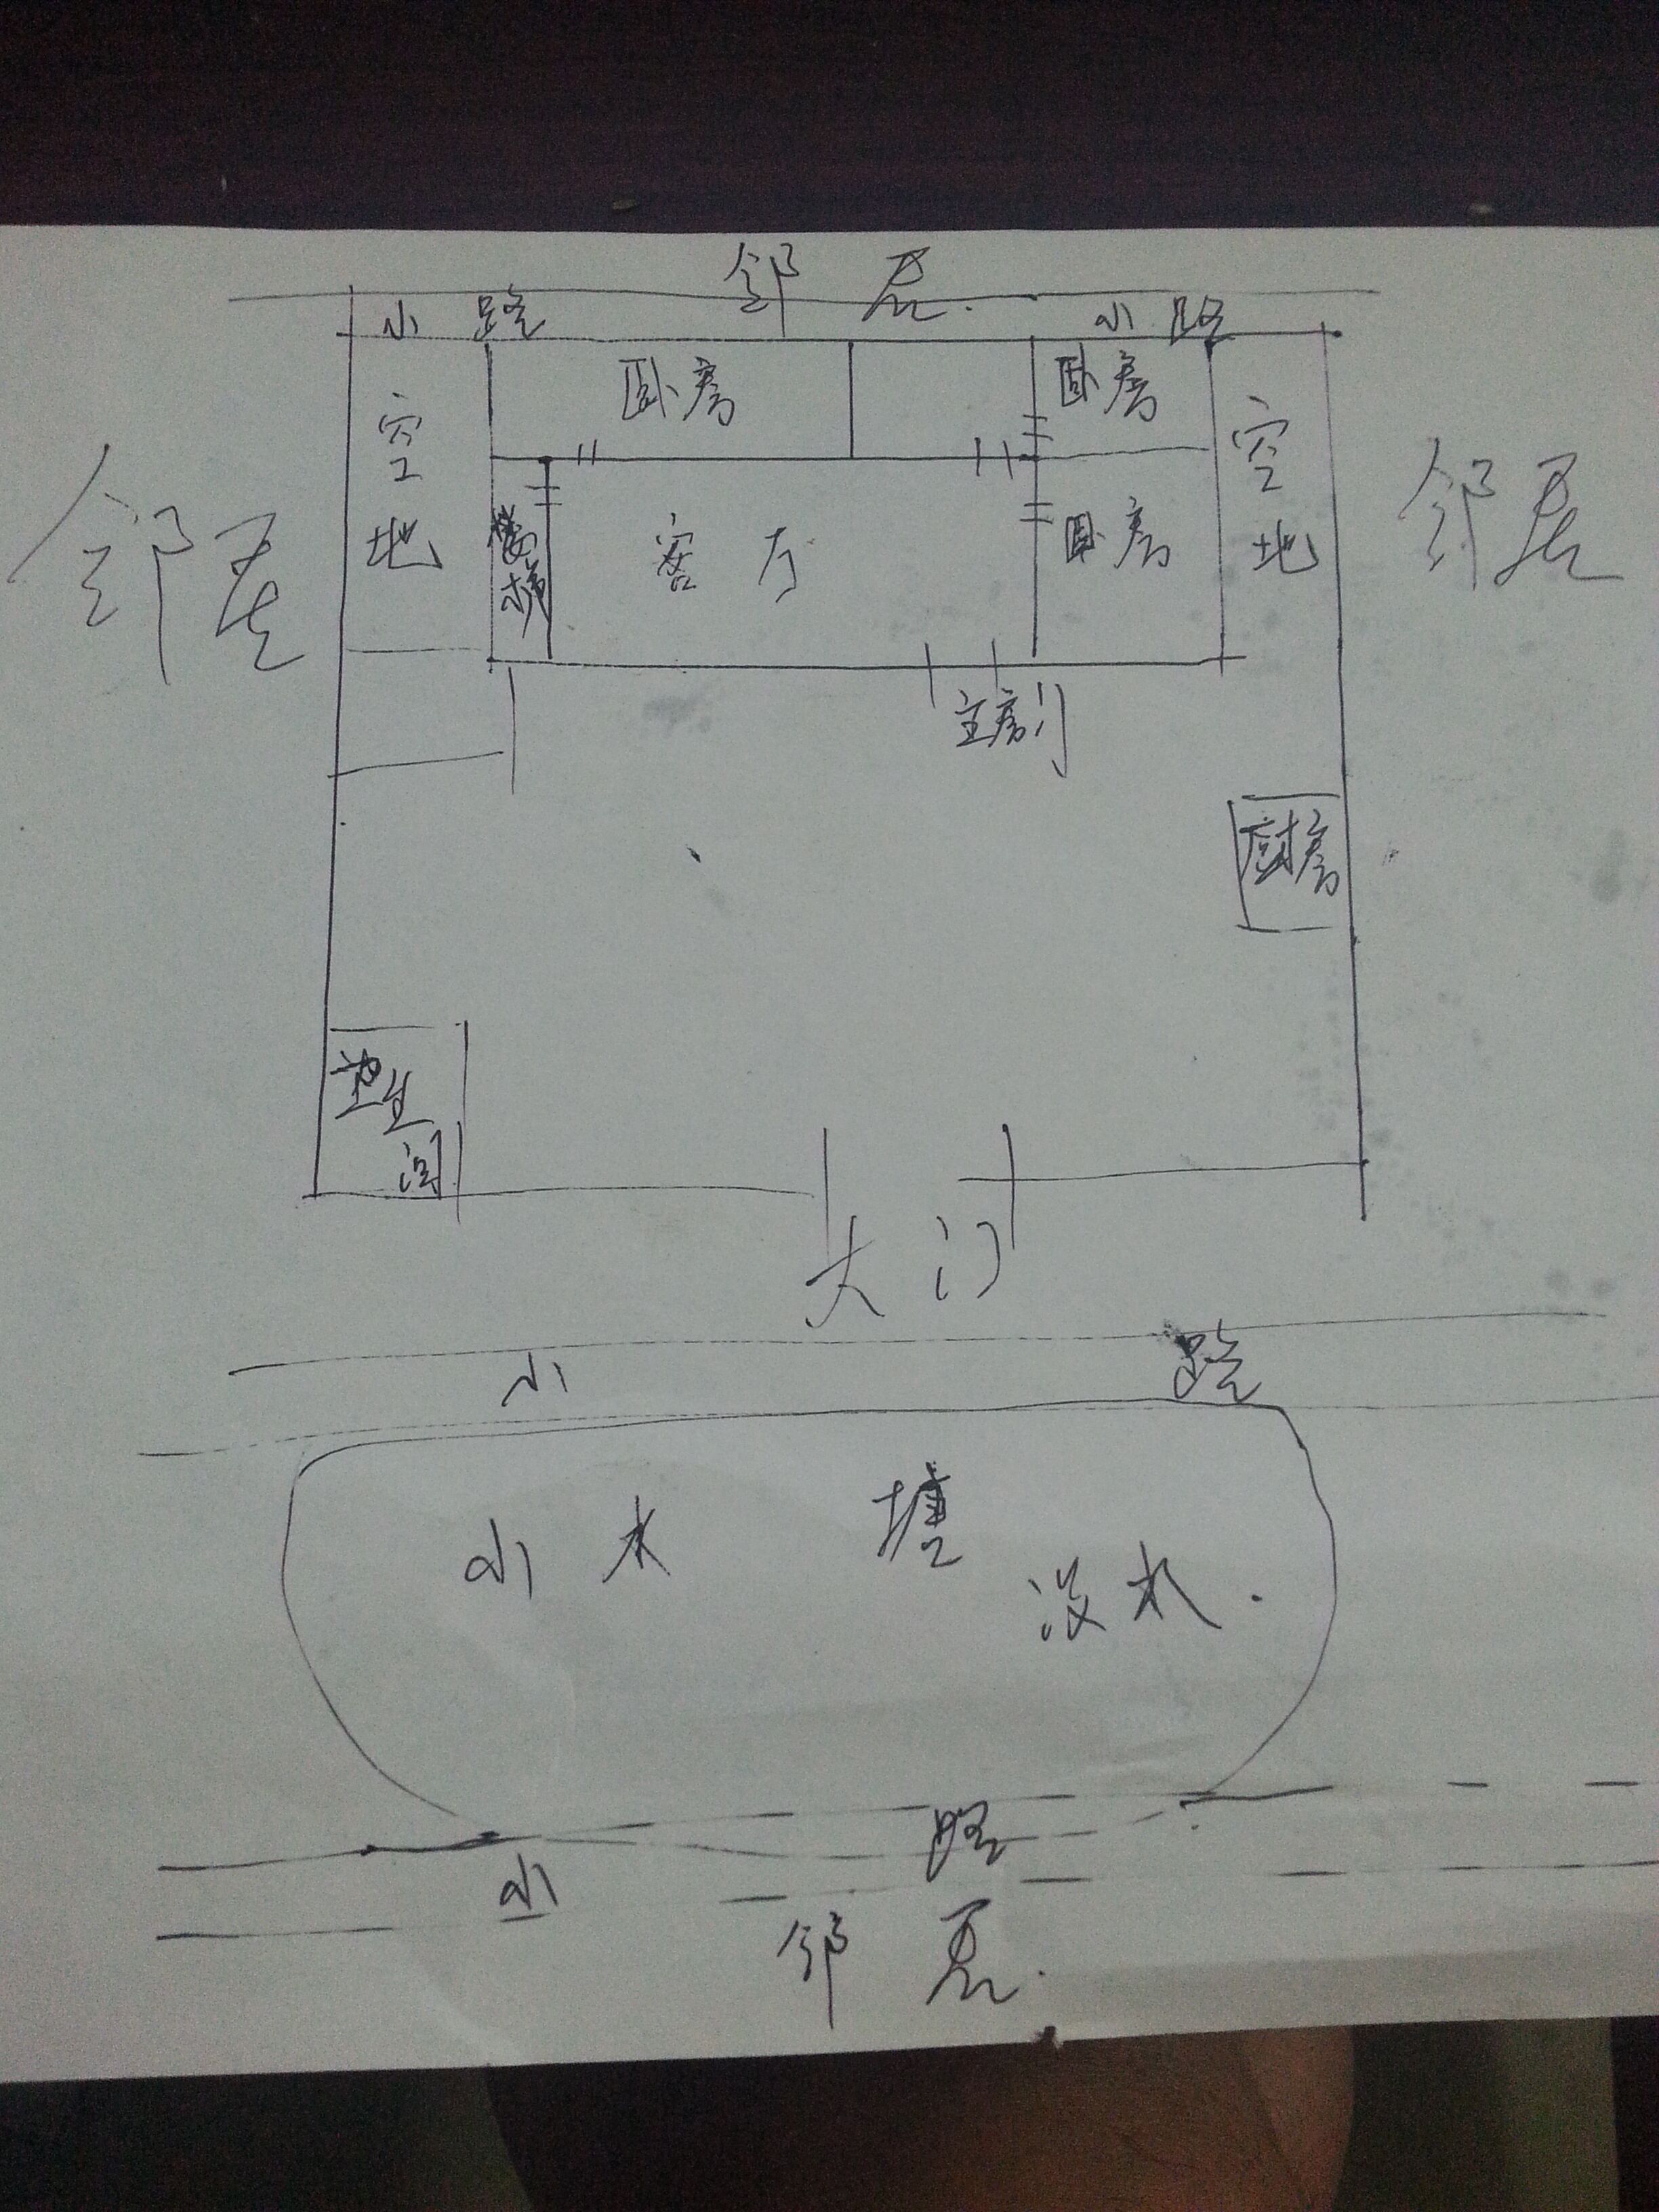 邻居.
小路 小路
卧房 卧房
空地 空地
邻居 邻居
楼梯 客厅 卧房
主房门
厨房
卫生间
大门
小路
小水塘
没水.
小路
邻居.